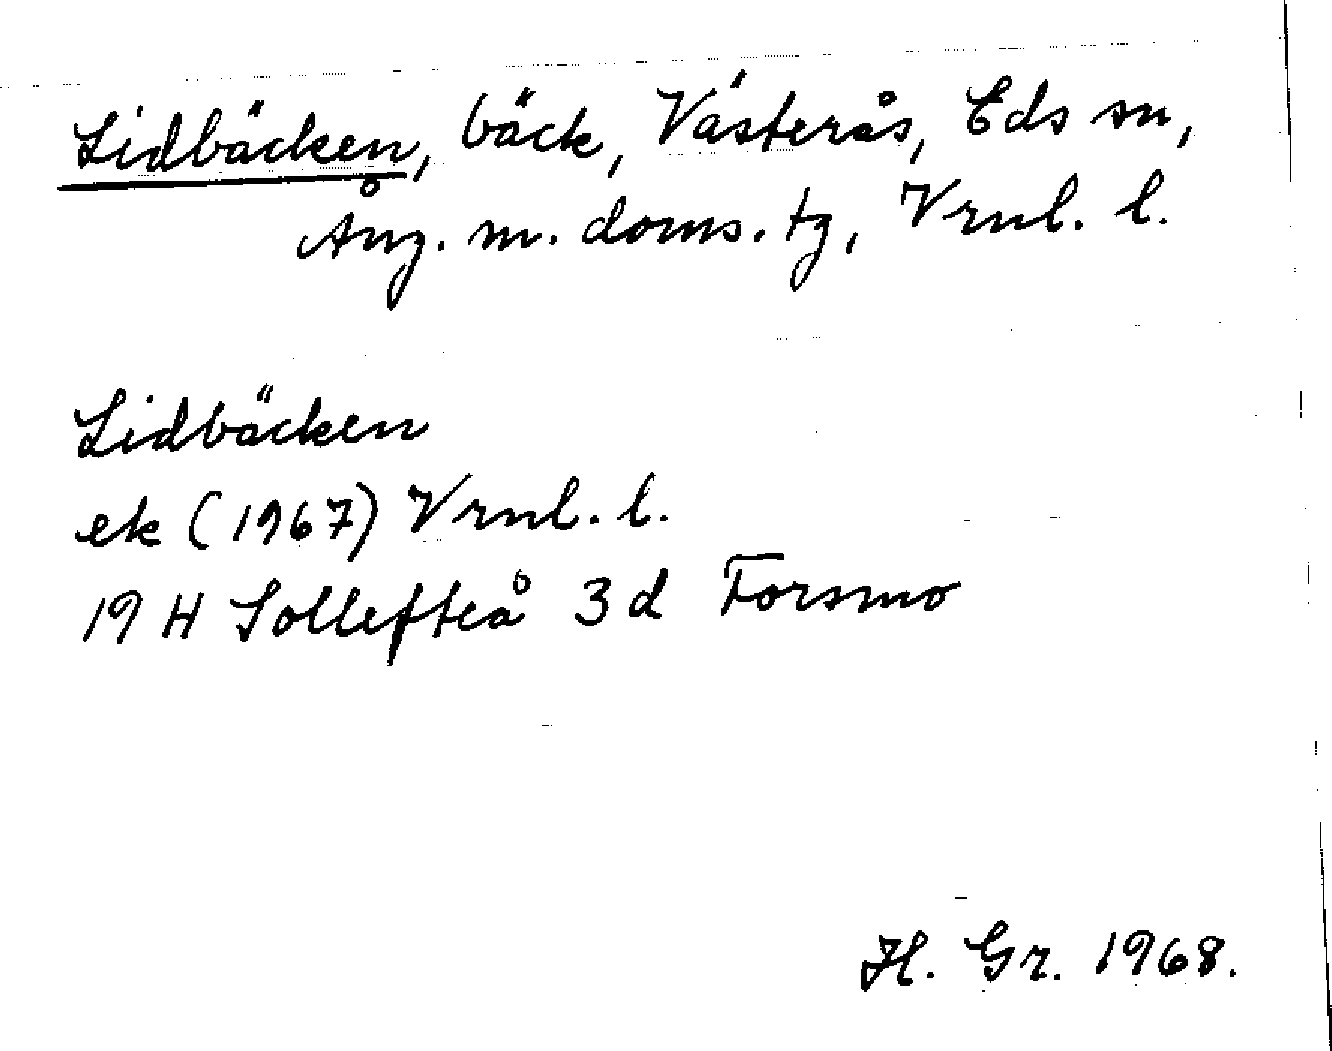 Lidbäcken, bäck, Västerås, Eds sn,
Ång. m. doms. tg, Vrnl. l.
Lidbäcken
ek (1967) Vrnl. l.
19 H Sollefteå 3 d Forsmo
H. Gr. 1968.